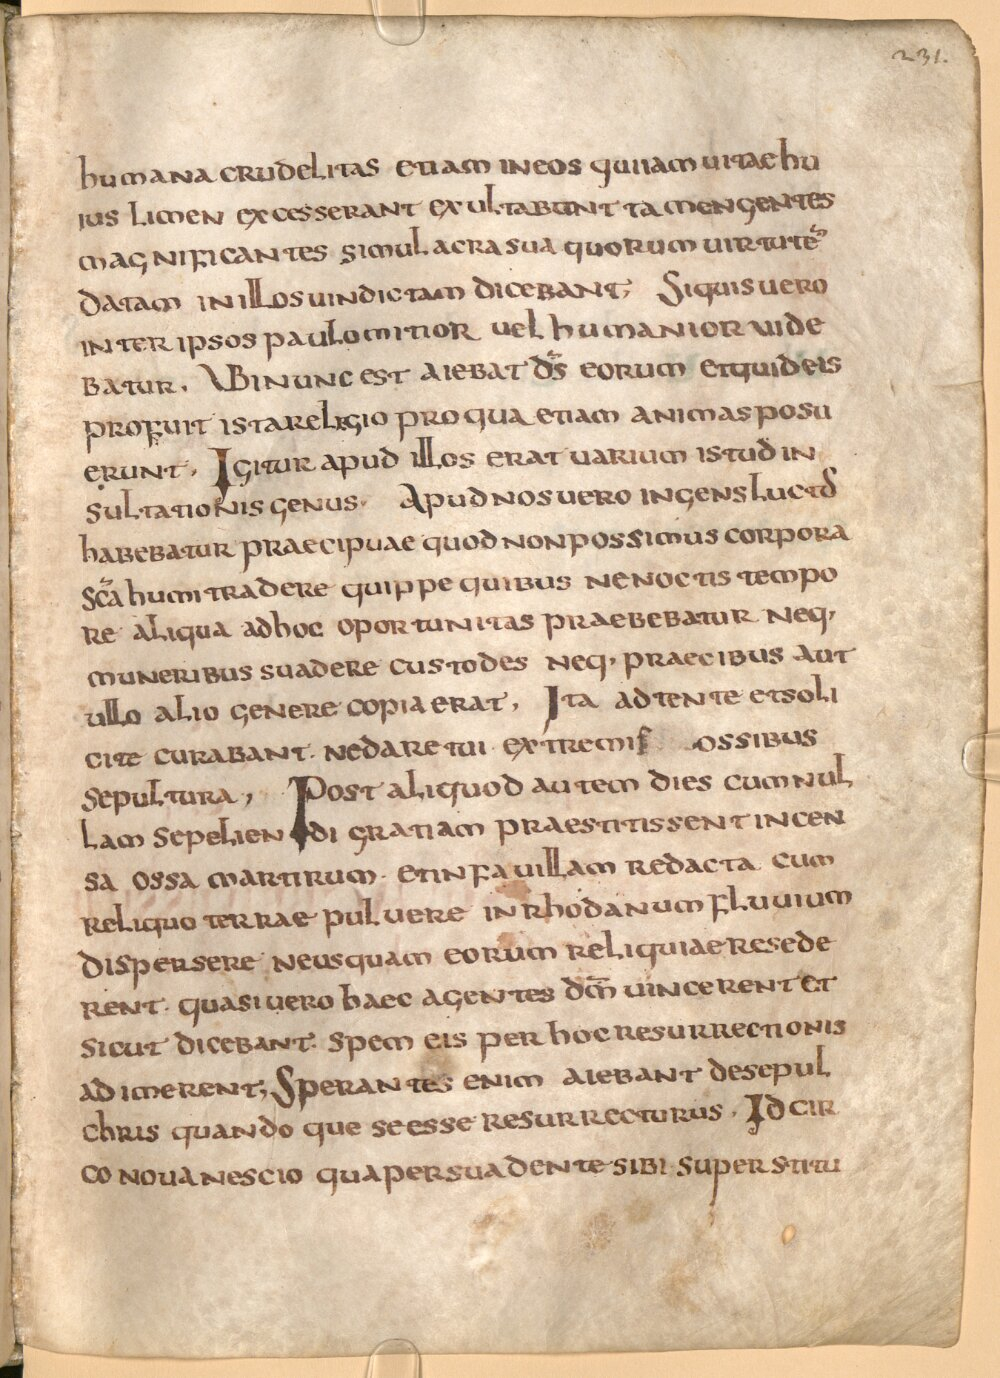 231.
humana crudelitas etiam ineos quiiam uitae hu
ius limen excesserant exultabant tamen gentes
magnificantes simulacra sua quorum uirtutē
datam in illos uindictam dicebant; Siquis uero
inter ipsos paulo mitior uel humanior uide
batur. Ubi nunc est aiebat d̄s eorum et quid eis
profuit ista religio pro qua etiam animas posu
erunt. Igitur apud illos erat uarium istud in
sultationis genus. Apud nos uero ingens luct
habebatur praecipuae quod non possimus corpora
sc̄a humi tradere quippe quibus ne noctis tempo
re aliqua ad hoc oportunitas praebebatur neq,
muneribus suadere custodes neq, praecibus aut
ullo alio genere copia erat, Ita adtente et soli
cite curabant. ne daretur extremis ossibus
sepultura, Post aliquod autem dies cum nul
lam sepeliendi gratiam praestitissent incen
sa ossa martirum. et in fauillam redacta cum
reliquo terrae puluere in rhodanum fluuium
dispersere ne usquam eorum reliquiae resede
rent. quasi uero haec agentes dm̄ uincerent et
sicut dicebant. spem eis per hoc resurrectionis
adimerent; Sperantes enim aiebant de sepul
chris quandoque se esse resurrecturus. Idcir
co noua nescio qua persuadente sibi superstitu